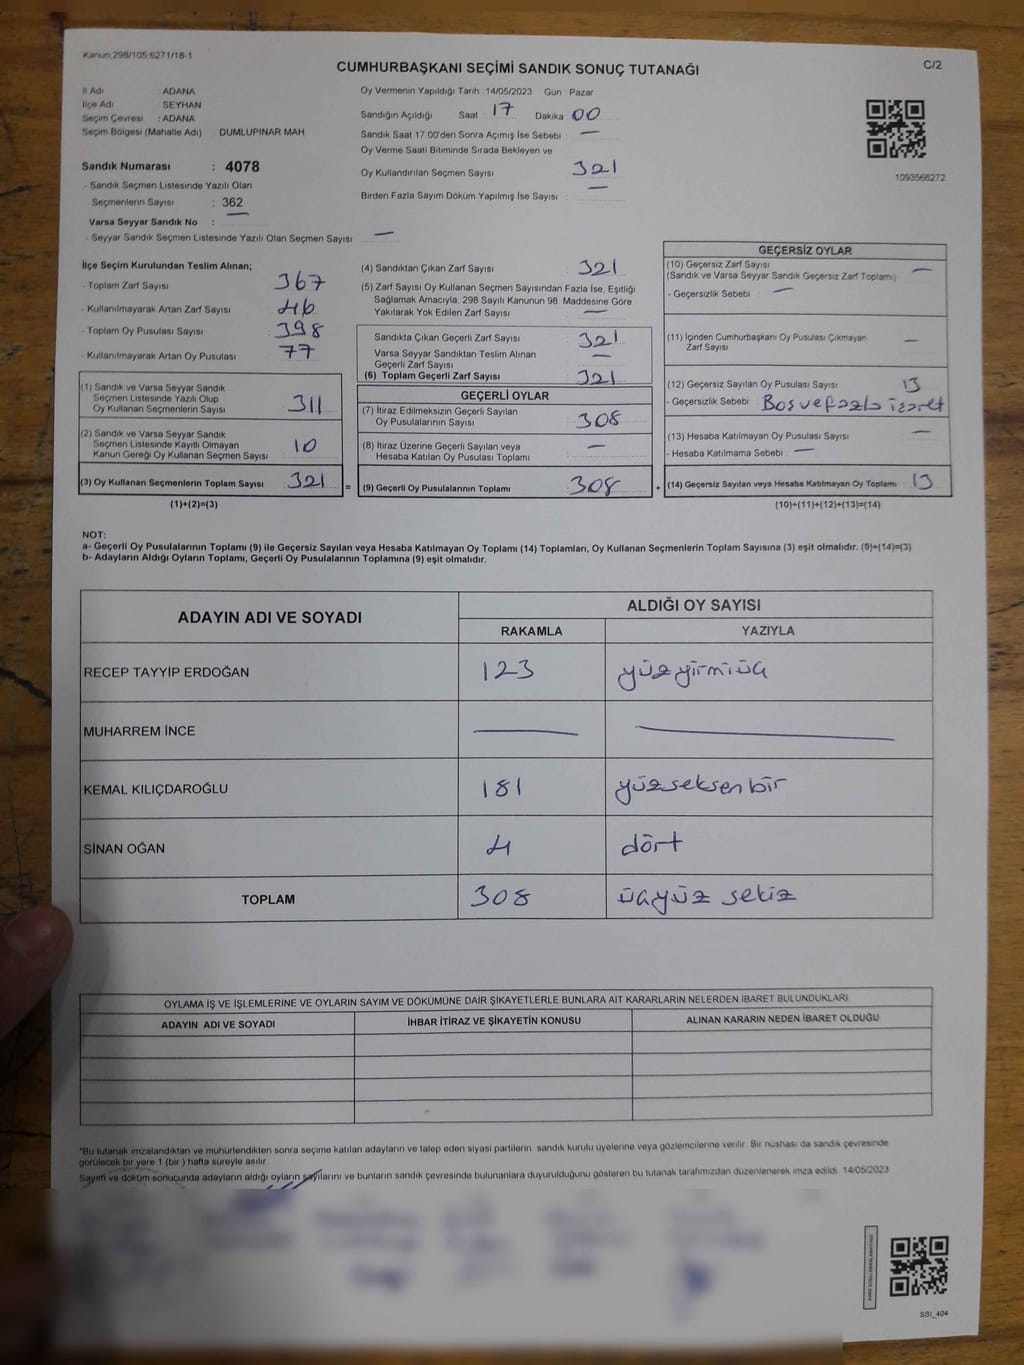 Kanun:298/105,6271/18-1
CUMHURBAŞKANI SEÇİMİ SANDIK SONUÇ TUTANAĞI
C/2
İl Adı ADANA
İlçe Adı SEYHAN
Seçim Çevresi : ADANA
Seçim Bölgesi (Mahalle Adı) DUMLUPINAR MAH
Sandık Numarası : 4078
- Sandık Seçmen Listesinde Yazılı Olan
Seçmenlerin Sayısı : 362
Varsa Seyyar Sandık No : —
- Seyyar Sandık Seçmen Listesinde Yazılı Olan Seçmen Sayısı —
Oy Vermenin Yapıldığı Tarih :14/05/2023 Gün Pazar
Sandığın Açıldığı Saat 17 Dakika 00
Sandık Saat 17:00'den Sonra Açımış İse Sebebi : —
Oy Verme Saati Bitiminde Sırada Bekleyen ve
Oy Kullandırılan Seçmen Sayısı 321
Birden Fazla Sayım Döküm Yapılmış İse Sayısı : —
1093566272
İlçe Seçim Kurulundan Teslim Alınan;
- Toplam Zarf Sayısı 367
- Kullanılmayarak Artan Zarf Sayısı 46
- Toplum Oy Pusulası Sayısı 398
- Kullanılmayarak Artan Oy Pusulası 77
(1) Sandık ve Varsa Seyyar Sandık
Seçmen Listesinde Yazılı Olup
Oy Kullanan Seçmenlerin Sayısı 311
(2) Sandık ve Varsa Seyyar Sandık
Seçmen Listesinde Kayıtlı Olmayan
Kanun Gereği Oy Kullanan Seçmen Sayısı 10
(3) Oy Kullanan Seçmenlerin Toplam Sayısı 321 =
(1)+(2)=(3)
(4) Sandıktan Çıkan Zarf Sayısı 321
(5) Zarf Sayısı Oy Kullanan Seçmen Sayısından Fazla İse, Eşitliği
Sağlamak Amacıyla, 298 Sayılı Kanunun 98. Maddesine Göre
Yakılarak Yok Edilen Zarf Sayısı —
Sandıkta Çıkan Geçerli Zarf Sayısı 321
Varsa Seyyar Sandıktan Teslim Alınan
Geçerli Zarf Sayısı —
(6) Toplam Geçerli Zarf Sayısı 321
GEÇERLİ OYLAR
(7) İtiraz Edilmeksizin Geçerli Sayılan
Oy Pusulalarının Sayısı 308
(8) İtiraz Üzerine Geçerli Sayılan veya
Hesaba Katılan Oy Pusulası Toplamı —
(9) Geçerli Oy Pusulalarının Toplamı 308 +
GEÇERSİZ OYLAR
(10) Geçersiz Zarf Sayısı —
(Sandık ve Varsa Seyyar Sandık Geçersiz Zarf Toplamı)
- Geçersizlik Sebebi —
(11) İçinden Cumhurbaşkanı Oy Pusulası Çıkmayan
Zarf Sayısı —
(12) Geçersiz Sayılan Oy Pusulası Sayısı 13
- Geçersizlik Sebebi Boş ve fazla işaret
(13) Hesaba Katılmayan Oy Pusulası Sayısı —
- Hesaba Katılmama Sebebi —
(14) Geçersiz Sayılan veya Hesaba Katılmayan Oy Toplamı 13
(10)+(11)+(12)+(13)=(14)
NOT:
a- Geçerli Oy Pusulalarının Toplamı (9) ile Geçersiz Sayılan veya Hesaba Katılmayan Oy Toplamı (14) Toplamları, Oy Kullanan Seçmenlerin Toplam Sayısına (3) eşit olmalıdır. (9)+(14)=(3)
b- Adayların Aldığı Oyların Toplamı, Geçerli Oy Pusulalarının Toplamına (9) eşit olmalıdır.
ADAYIN ADI VE SOYADI ALDIĞI OY SAYISI
RAKAMLA YAZIYLA
RECEP TAYYİP ERDOĞAN 123 yüzyirmiüç
MUHARREM İNCE — —
KEMAL KILIÇDAROĞLU 181 yüzseksenbir
SİNAN OĞAN 4 dört
TOPLAM 308 üçyüz sekiz
OYLAMA İŞ VE İŞLEMLERİNE VE OYLARIN SAYIM VE DÖKÜMÜNE DAİR ŞİKAYETLERLE BUNLARA AİT KARARLARIN NELERDEN İBARET BULUNDUKLARI
ADAYIN ADI VE SOYADI İHBAR İTİRAZ VE ŞİKAYETİN KONUSU ALINAN KARARIN NEDEN İBARET OLDUĞU
"Bu tutanak imzalandıktan ve mühürlendikten sonra seçime katılan adayların ve talep eden siyasi partilerin sandık kurulu üyelerine veya gözlemcilerine verilir. Bir nüshası da sandık çevresinde
görülecek bir yere 1 (bir ) hafta süreyle asılır.
Sayım ve döküm sonuçunda adayların aldığı oyların sayılarını ve bunların sandık çevresinde bulunanlara duyurulduğunu gösteren bu tutanak tarafımızdan düzenlenerek imza edildi. 14/05/2023
SSI_404